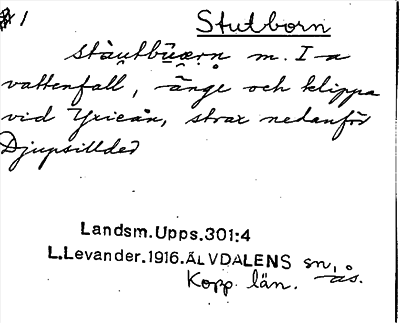 1 Stutborn
stàutbūærn m. I a
vattenfall, änge och klippa
vid Yxieån, strax nedanför
Djupsillded
Landsm.Upps.301:4
L.Levander.1916.ÄLVDALENS sn,
Kopp. län. ås.